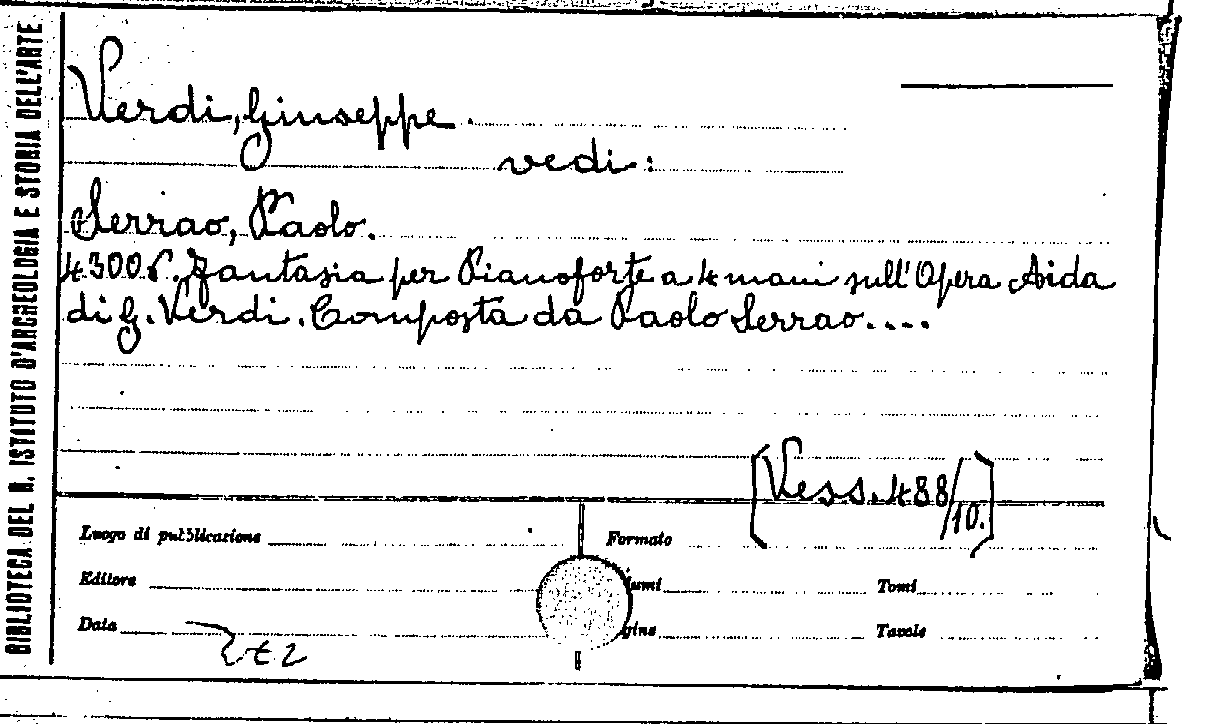 BIBLIOTECA DEL R. ISTITUTO D'ARCHEOLOGIA E STORIA DELL'ARTE
Verdi, Giuseppe.
vedi:
Serrao, Paolo.
Fantasia per Pianoforte a 4 mani sull'Opera Aida
di G. Verdi. Composta da Paolo Serrao....
[Vess. 488/10.]
Luogo di pubblicazione
Formato
Editore
Tomi
Data
Tavole